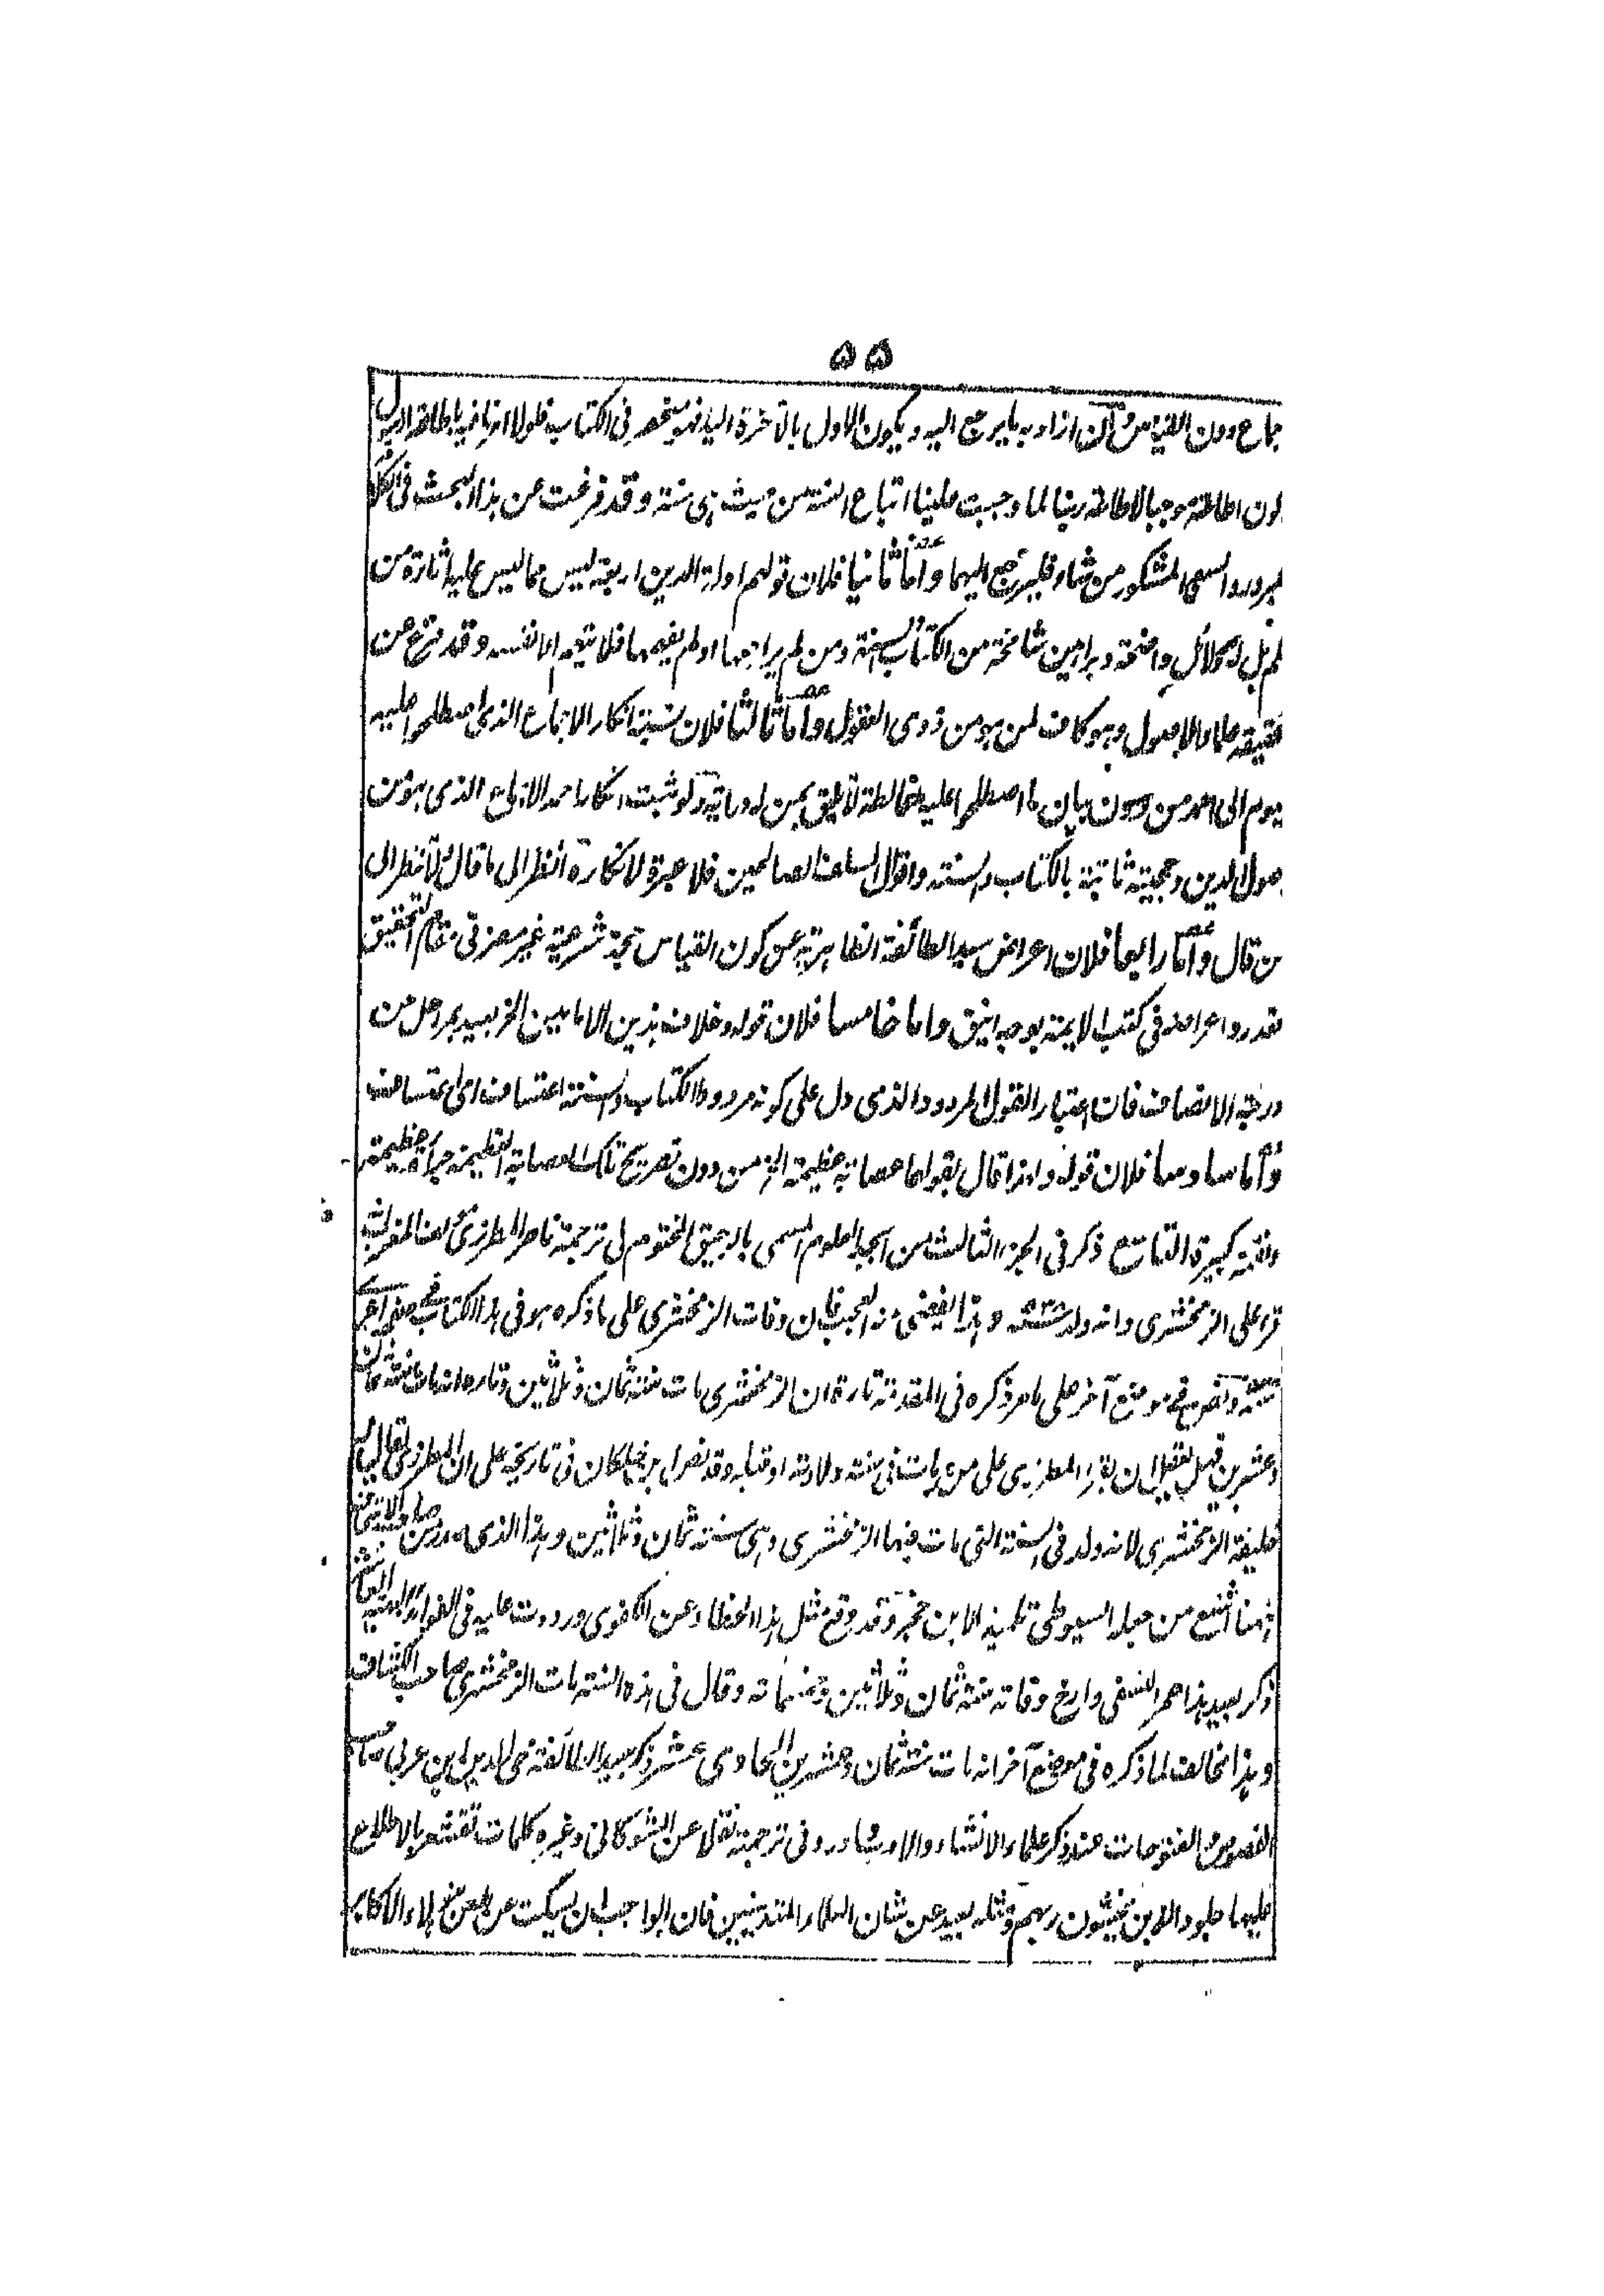 ۵۵
جماع دون القياس وان اراد به ما يرجع اليه ويكون الاول بالآخرة اليه فهو منحصر فى الكتاب فلولا امرنا فيه باطاعة الرسول
كون اطاعته موجبا لاطاعة ربنا لما وجبت علينا اتباع السنة من حيث هى سنة وقد فرغت عن هذا البحث فى الكلام
لمبرور والسعى المشكور من شاء فليرجع اليهما وأما ثانيا فلان قولهم ادلة الدين اربعة ليس مما ليس عليه اثارة من
لم بل له دلائل واضحة وبراهين شامخة من الكتاب والسنة ومن لم يراجعها او لم يفهمها فلا يتهم الا نفسه وقد فرغ عن
قيقه علماء الاصول وهو كاف لمن هو من ذوى العقول وأما ثالثا فلان نسبة انكار الاجماع الذى اصطلحوا عليه
يوم الى احمد من دون بيان ما اصطلحوا عليه مغالطة لا يليق بمن له دراية ولو ثبت انكار احمد الاجماع الذى هو من
صول الدين وحجيته ثابتة بالكتاب والسنة واقوال السلف الصالحين فلا عبرة لانكاره انظر الى ما قال ولا تنظر الى
من قال وأما رابعا فلان اعراض سيد الطائفة الظاهرية عن كون القياس حجة شرعية غير مضر فى مقام التحقيق
فقد ردوا اعراضه فى كتب الايمة بوجه انيق واما خامسا فلان قوله وخلاف هذين الامامين الخ بعيد بمراحل من
درجة الانصاف فان اعتبار القول المردود الذى دل على كونه مردودا الكتاب والسنة اعتساف اى اعتساف
وأما سادسا فلان قوله ولهذا قال بقولهما عصابة عظيمة الخ من دون تصريح تلك العصابة العظيمة جرأة عظيمة
وفتنة كبيرة التاسع ذكر فى الجزء الثالث من ابجد العلوم المسمى بالرحيق المختوم فى ترجمة ناصر المطرزى مؤلف المغرب انه
قرء على الزمخشرى وانه ولد سنة وهذا يقضى منه العجب فان وفات الزمخشرى على ما ذكره هو فى هذا الكتاب فى
وفى موضع آخر على ما مر ذكره فى المقدمة تارة ان الزمخشرى مات سنة ثمان وثلاثين وتارة انه مات سنة ثمان
وعشرين فهل يعقل ان يقرأ المطرزى على من مات فى سنة ولادته او قبله وقد نص ابن خلكان فى تاريخه على ان المطرزى يقال له
خليفة الزمخشرى لانه ولد فى السنة التى مات فيها الزمخشرى وهى سنة ثمان وثلاثين وهذا الذى صدر من
ههنا اشنع من جعله السيوطى تلميذ الابن حجر وقد وقع مثل هذا الخطاء عن الكفوى ورددت عليه فى الفوائد البهية العاشر
ذكر بعيد هذا عمر النسفى وارخ وفاته سنة ثمان وثلاثين وخمسمائة وقال فى هذه السنة مات الزمخشرى صاحب الكشاف
وهذا مخالف لما ذكره فى موضع آخر انه مات سنة ثمان وعشرين الحادى عشر ذكر سيد الطائفة محى الدين ابن عربى صاحب
الفصوص والفتوحات عند ذكر علماء الانشاء والادب واورد فى ترجمته نقلا عن الشوكانى وغيره كلمات تقشعر بالاطلاع
عليها جلود الذين يخشون ربهم ومثله بعيد عن شان العلماء المتدينين فان الواجب ان يسكت عن طعن هؤلاء الاكابر